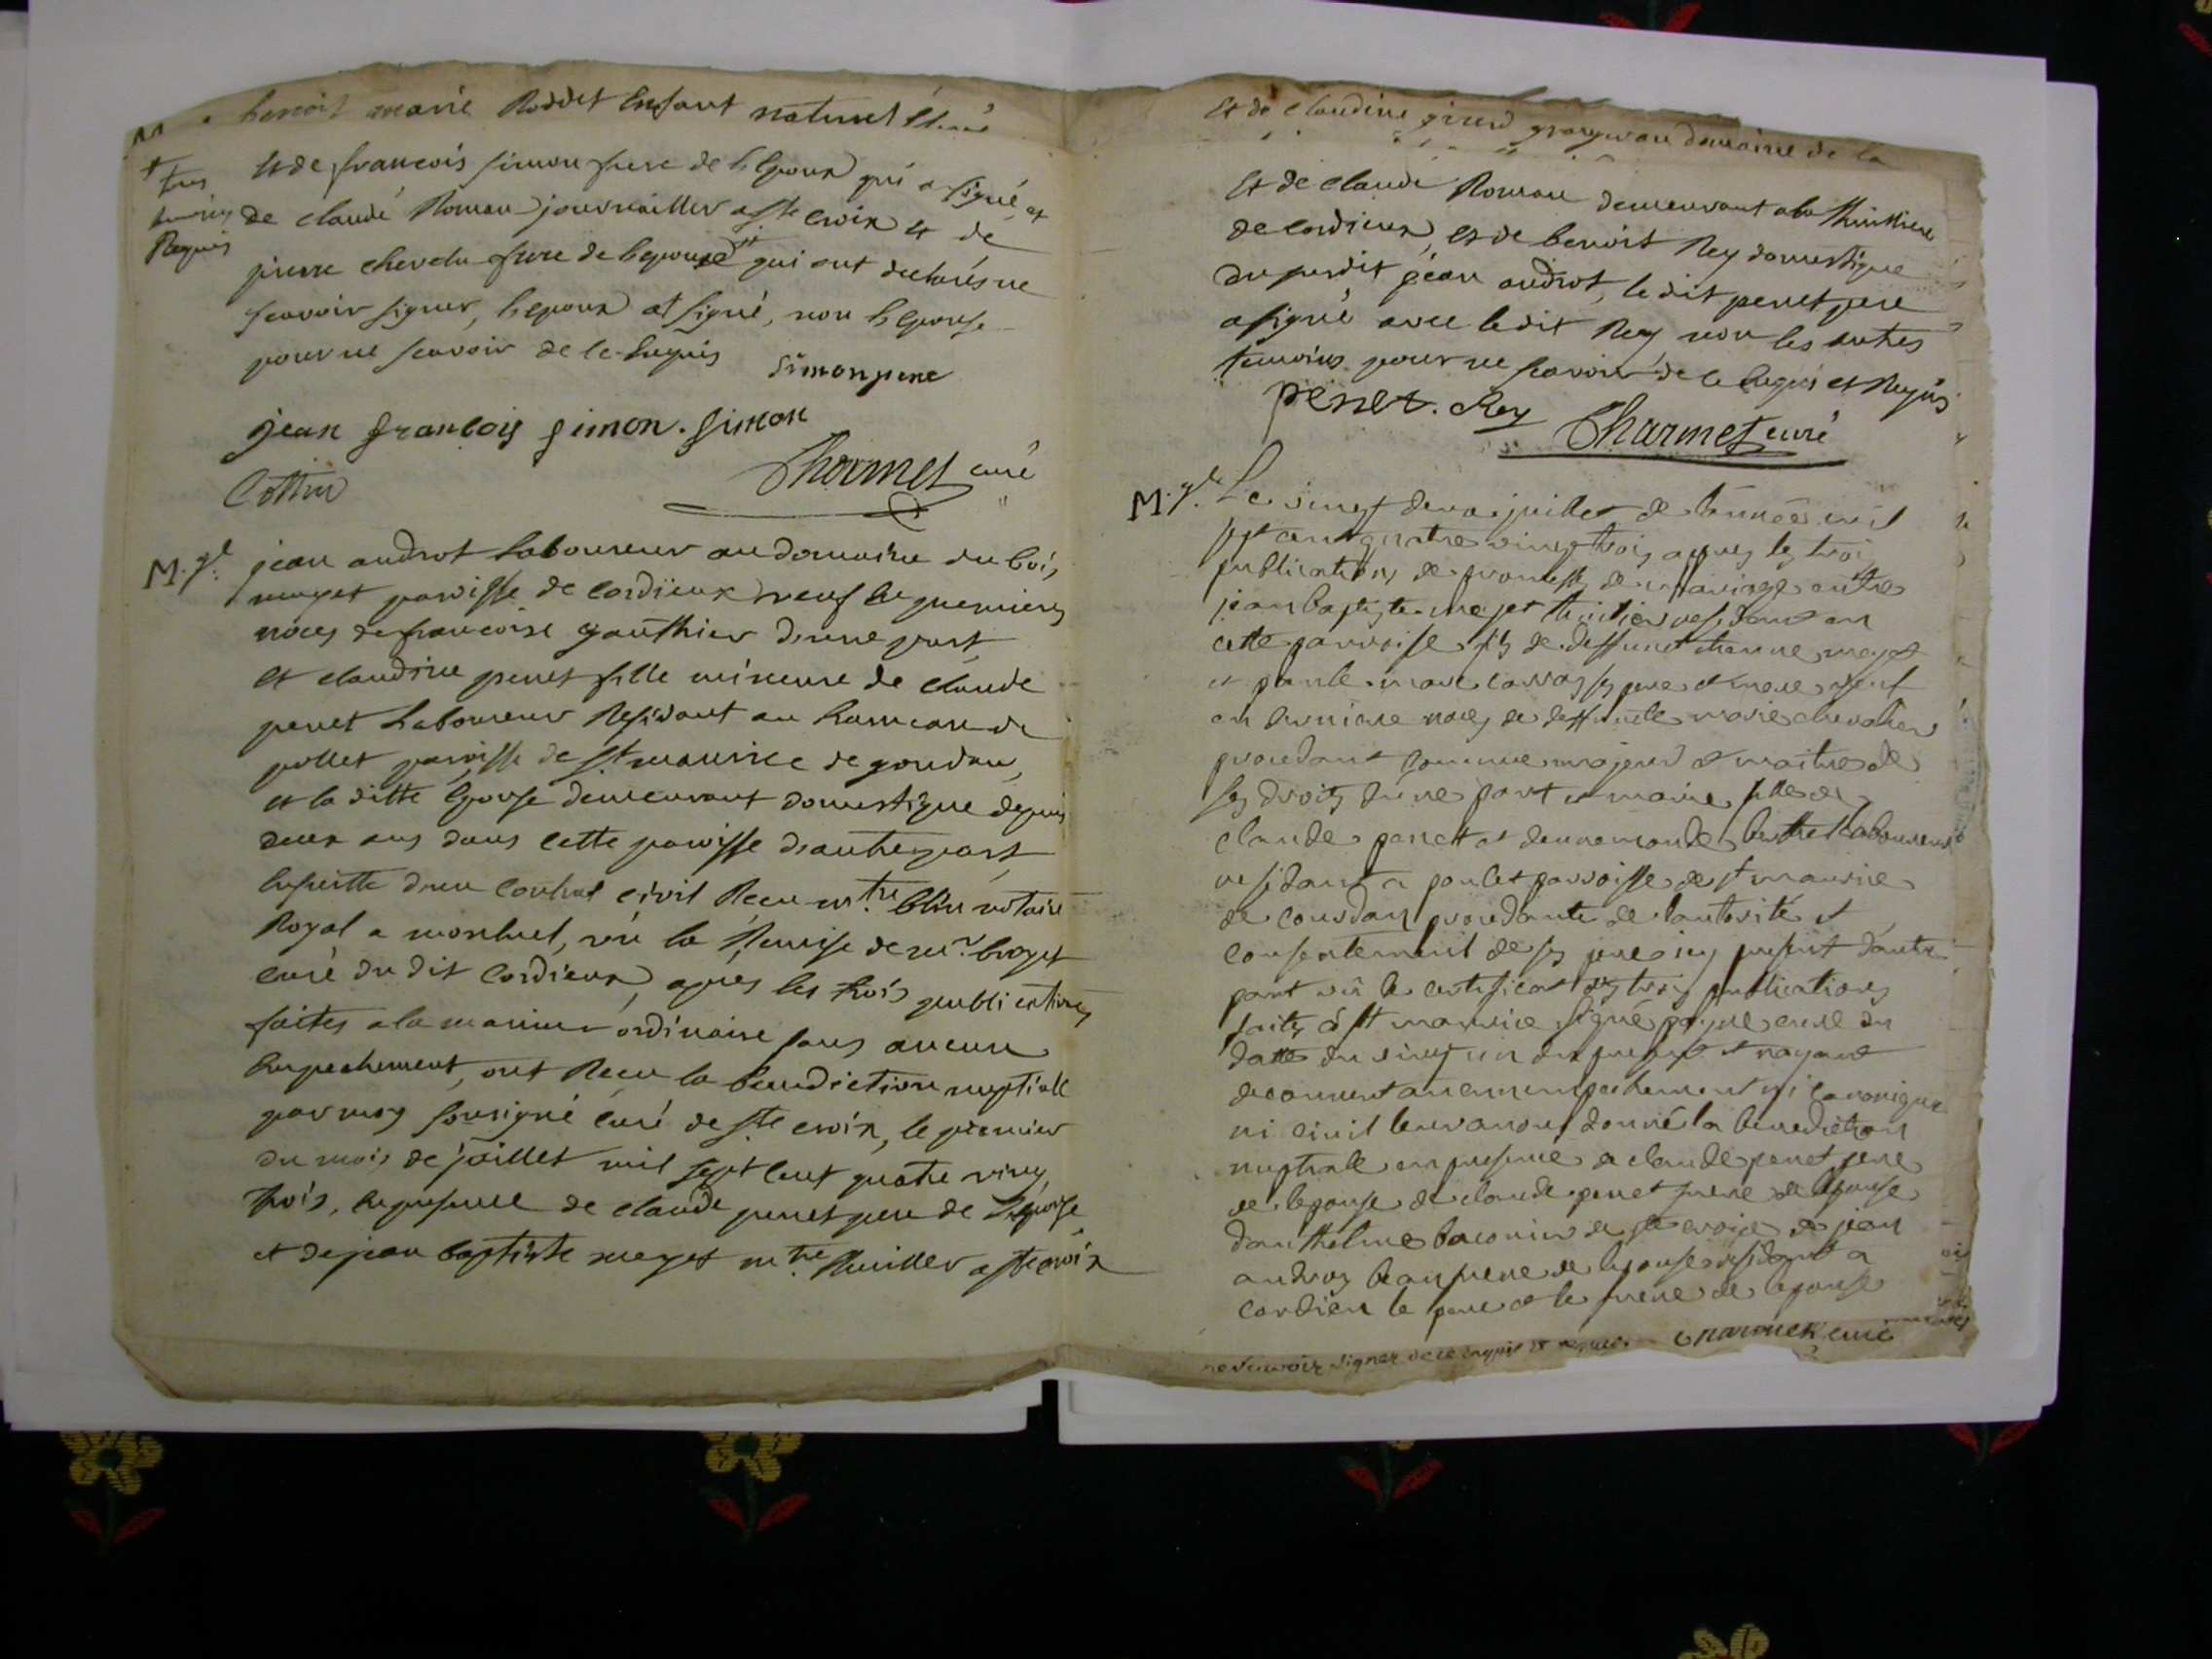 benoit marie Roddet Enfant naturel
Et de francois simon frere de l'Epoux qui a signé, et
de claude Roman journailler a ste croix et de
pierre chevelu frere de l'epouse qui ont declarés ne
scavoir signer, l'epoux at signé, non l'Epouse
pour ne scavoir de ce Enquis
tem
Requis
simon pere
jean francois simon. simon
Cottin
Charmet curé
M. ge
jean androt Laboureur au domaine du bois
muyet paroisse de Cordieux veuf En premieres
noces de francoise gauthier d'une part
et claudine penet fille mineure de claude
penet Laboureur Residant au hameau de
pollet paroisse de st maurice de gourdan,
et la ditte Epouse demeurant domestique depuis
deux ans dans cette paroisse d'autre part
Ensuitte d'un Contrat civil Recu mtre blin notaire
Royal a montluel, vû la Remise de mr. broyet
curé du dit Cordieux, apres les trois publications
faites a la maniere ordinaire sans aucun
Empechement, ont Recu la benediction nuptiale
par moy sousigné curé de ste croix, le premier
du mois de juillet mil sept cent quatre vingt
trois, En presence de claude penet pere de l'Epouse
et de jean baptiste meget mtre thuillier a ste croix
Et de claudine girerd granger au domaine de la
Et de claude Roman demeurant a la thuilliere
de Cordieux, Et de benoit Rey domestique
du susdit jean androt, le dit penet pere
a signé avec le dit Rey non les autres
temoins pour ne scavoir de ce Enquis et Requis
penet. Rey Charmet curé
M. ge
Le vingt deux juillet de l'année mil
sept cent quatre vingt trois apres les trois
publications de promesses de mariage entre
jean baptiste meget tuilier residant en
cette parroisse fils de deffunct etienne meget
et pere et mere veuf
en derniere noces de deffuncte marie chevalier
procedant comme majeur et maitre de
ses droits d'une part et marie fille de
claude penet et de laboureur
residant a poulet parroisse de st maurice
de gourdan procedante de l'autorité et
consentement de son pere icy present d'autre
part vû le certificat des trois publications
faites á st maurice signé curé en
datte du vingt un du present et n'ayant
decouvert aucun empechement ni canonique
ni civil leur avons donné la benediction
nuptiale en presence de claude penet pere
de l'epouse de claude penet frere de l'epouse
d'anthelme baconier de ste croix de jean
androt beaufrere de l'epouse residant a
cordieu le pere et le frere de l'epouse
ne scavoir signer de ce enquis et requis. Charmet curé